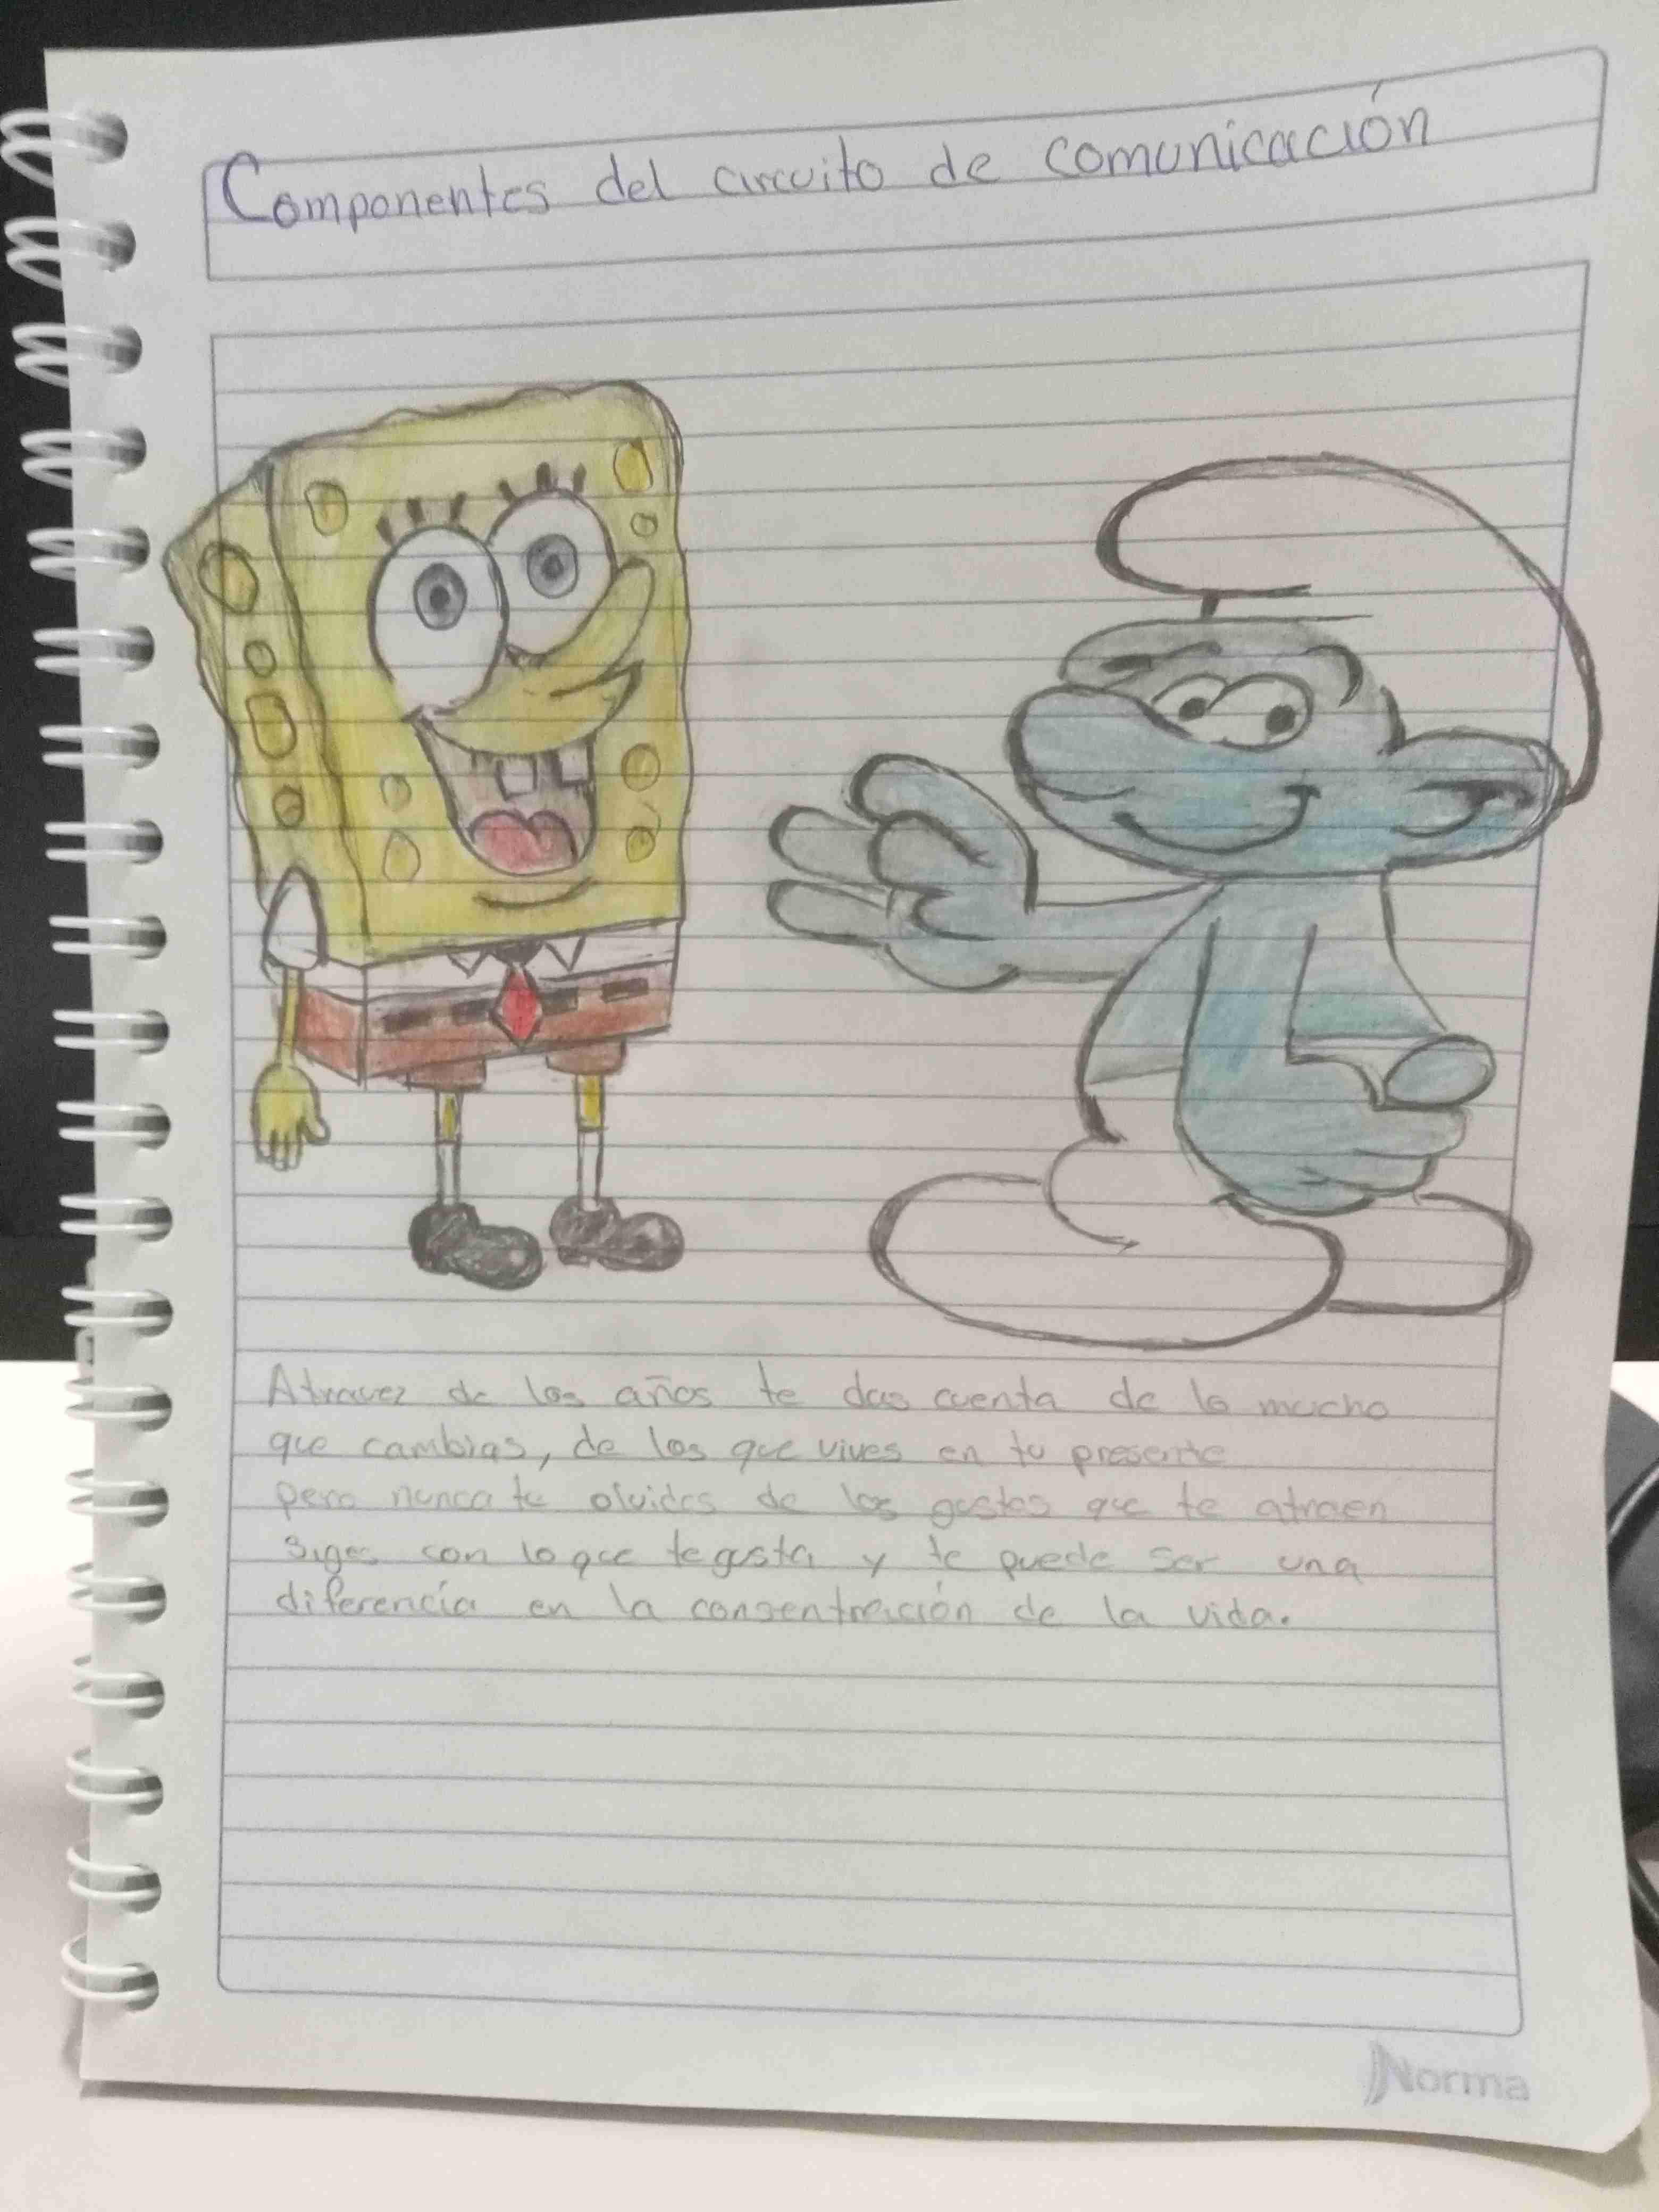 Componentes del circuito de comunicación
Atravez de los años te das cuenta de lo mucho
que cambias, de los que vives en tu presente
pero nunca te olvides de los gustos que te atraen
siges con lo que te gusta y te puede ser una
diferencia en la consentración de la vida.
Norma